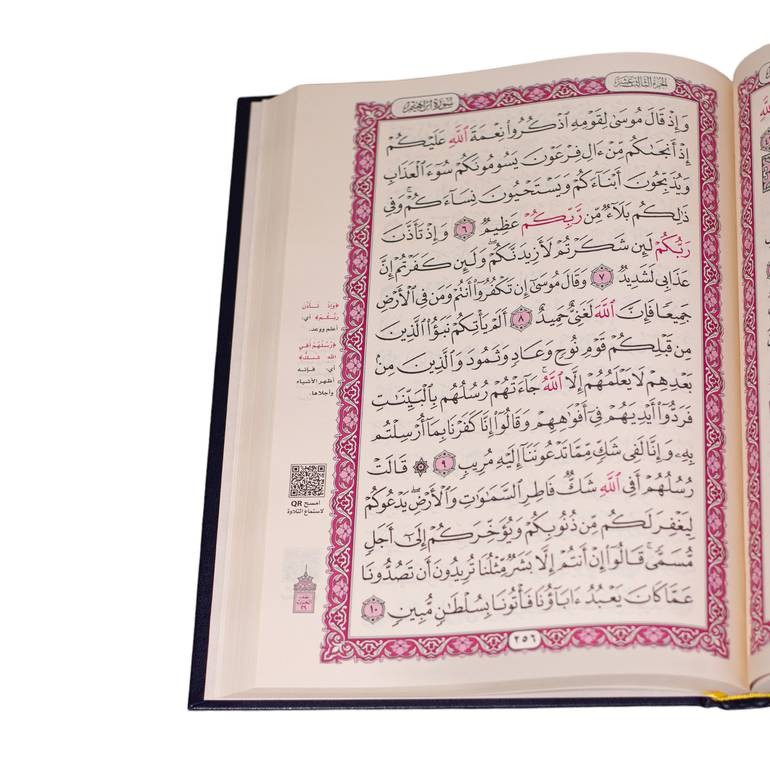 الجزء الثالث عشر
سورة ابراهيم
وَإِذْ قَالَ مُوسَىٰ لِقَوْمِهِ ٱذْكُرُوا۟ نِعْمَةَ ٱللَّهِ عَلَيْكُمْ
إِذْ أَنجَىٰكُم مِّنْ ءَالِ فِرْعَوْنَ يَسُومُونَكُمْ سُوٓءَ ٱلْعَذَابِ
وَيُذَبِّحُونَ أَبْنَآءَكُمْ وَيَسْتَحْيُونَ نِسَآءَكُمْ ۚ وَفِى
ذَٰلِكُم بَلَآءٌ مِّن رَّبِّكُمْ عَظِيمٌ ٦ وَإِذْ تَأَذَّنَ
رَبُّكُمْ لَئِن شَكَرْتُمْ لَأَزِيدَنَّكُمْ ۖ وَلَئِن كَفَرْتُمْ إِنَّ
عَذَابِى لَشَدِيدٌ ٧ وَقَالَ مُوسَىٰٓ إِن تَكْفُرُوٓا۟ أَنتُمْ وَمَن فِى ٱلْأَرْضِ
جَمِيعًا فَإِنَّ ٱللَّهَ لَغَنِىٌّ حَمِيدٌ ٨ أَلَمْ يَأْتِكُمْ نَبَؤُا۟ ٱلَّذِينَ
مِن قَبْلِكُمْ قَوْمِ نُوحٍ وَعَادٍ وَثَمُودَ ۛ وَٱلَّذِينَ مِنۢ
بَعْدِهِمْ ۛ لَا يَعْلَمُهُمْ إِلَّا ٱللَّهُ ۚ جَآءَتْهُمْ رُسُلُهُم بِٱلْبَيِّنَـٰتِ
فَرَدُّوٓا۟ أَيْدِيَهُمْ فِىٓ أَفْوَٰهِهِمْ وَقَالُوٓا۟ إِنَّا كَفَرْنَا بِمَآ أُرْسِلْتُم
بِهِۦ وَإِنَّا لَفِى شَكٍّ مِّمَّا تَدْعُونَنَآ إِلَيْهِ مُرِيبٍ ٩ قَالَتْ
رُسُلُهُمْ أَفِى ٱللَّهِ شَكٌّ فَاطِرِ ٱلسَّمَـٰوَٰتِ وَٱلْأَرْضِ ۖ يَدْعُوكُمْ
لِيَغْفِرَ لَكُم مِّن ذُنُوبِكُمْ وَيُؤَخِّرَكُمْ إِلَىٰٓ أَجَلٍ
مُّسَمًّى ۚ قَالُوٓا۟ إِنْ أَنتُمْ إِلَّا بَشَرٌ مِّثْلُنَا تُرِيدُونَ أَن تَصُدُّونَا
عَمَّا كَانَ يَعْبُدُ ءَابَآؤُنَا فَأْتُونَا بِسُلْطَـٰنٍ مُّبِينٍ ١٠
٢٥٦
﴿وَإِذْ تَأَذَّنَ
رَبُّكُمْ﴾ أي:
أعلم ووعد.
﴿رُسُلُهُمْ أَفِي
اللهِ شَكٌّ﴾
أي: فإنه
أظهر الأشياء
وأجلاها.
امسح QR
لاستماع التلاوة